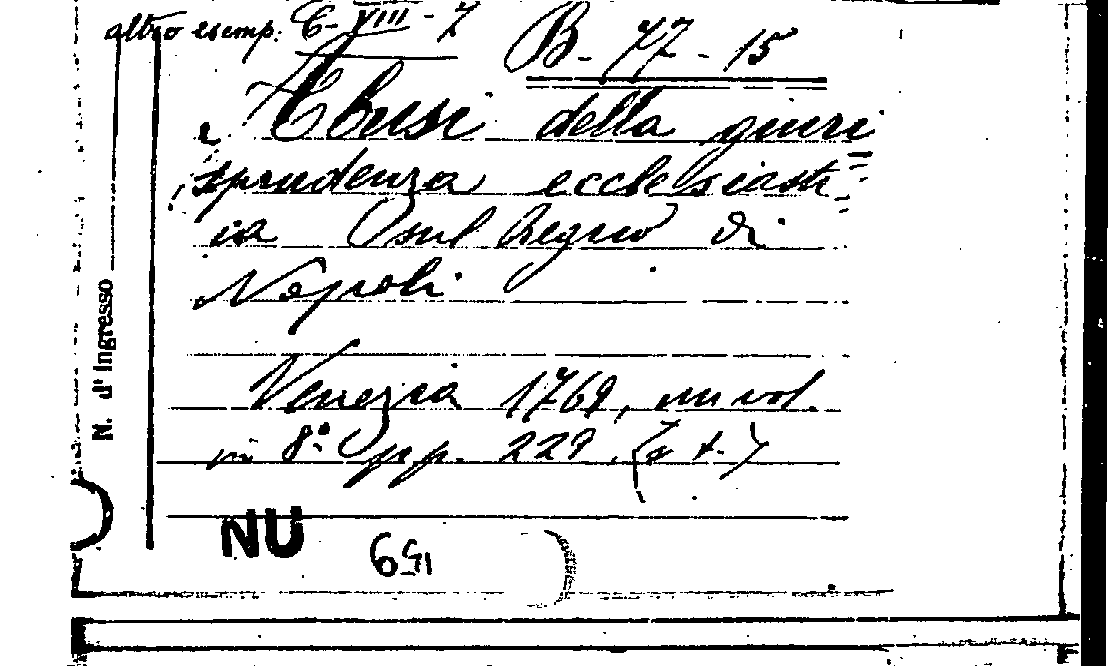 altro esemp. C-VIII-7
B-77-15
Abusi della giuri
sprudenza ecclesiasti
ca sul Regno di
Napoli
Venezia 1769, un vol.
in 8° pp. 229.
N. d' Ingresso
NU